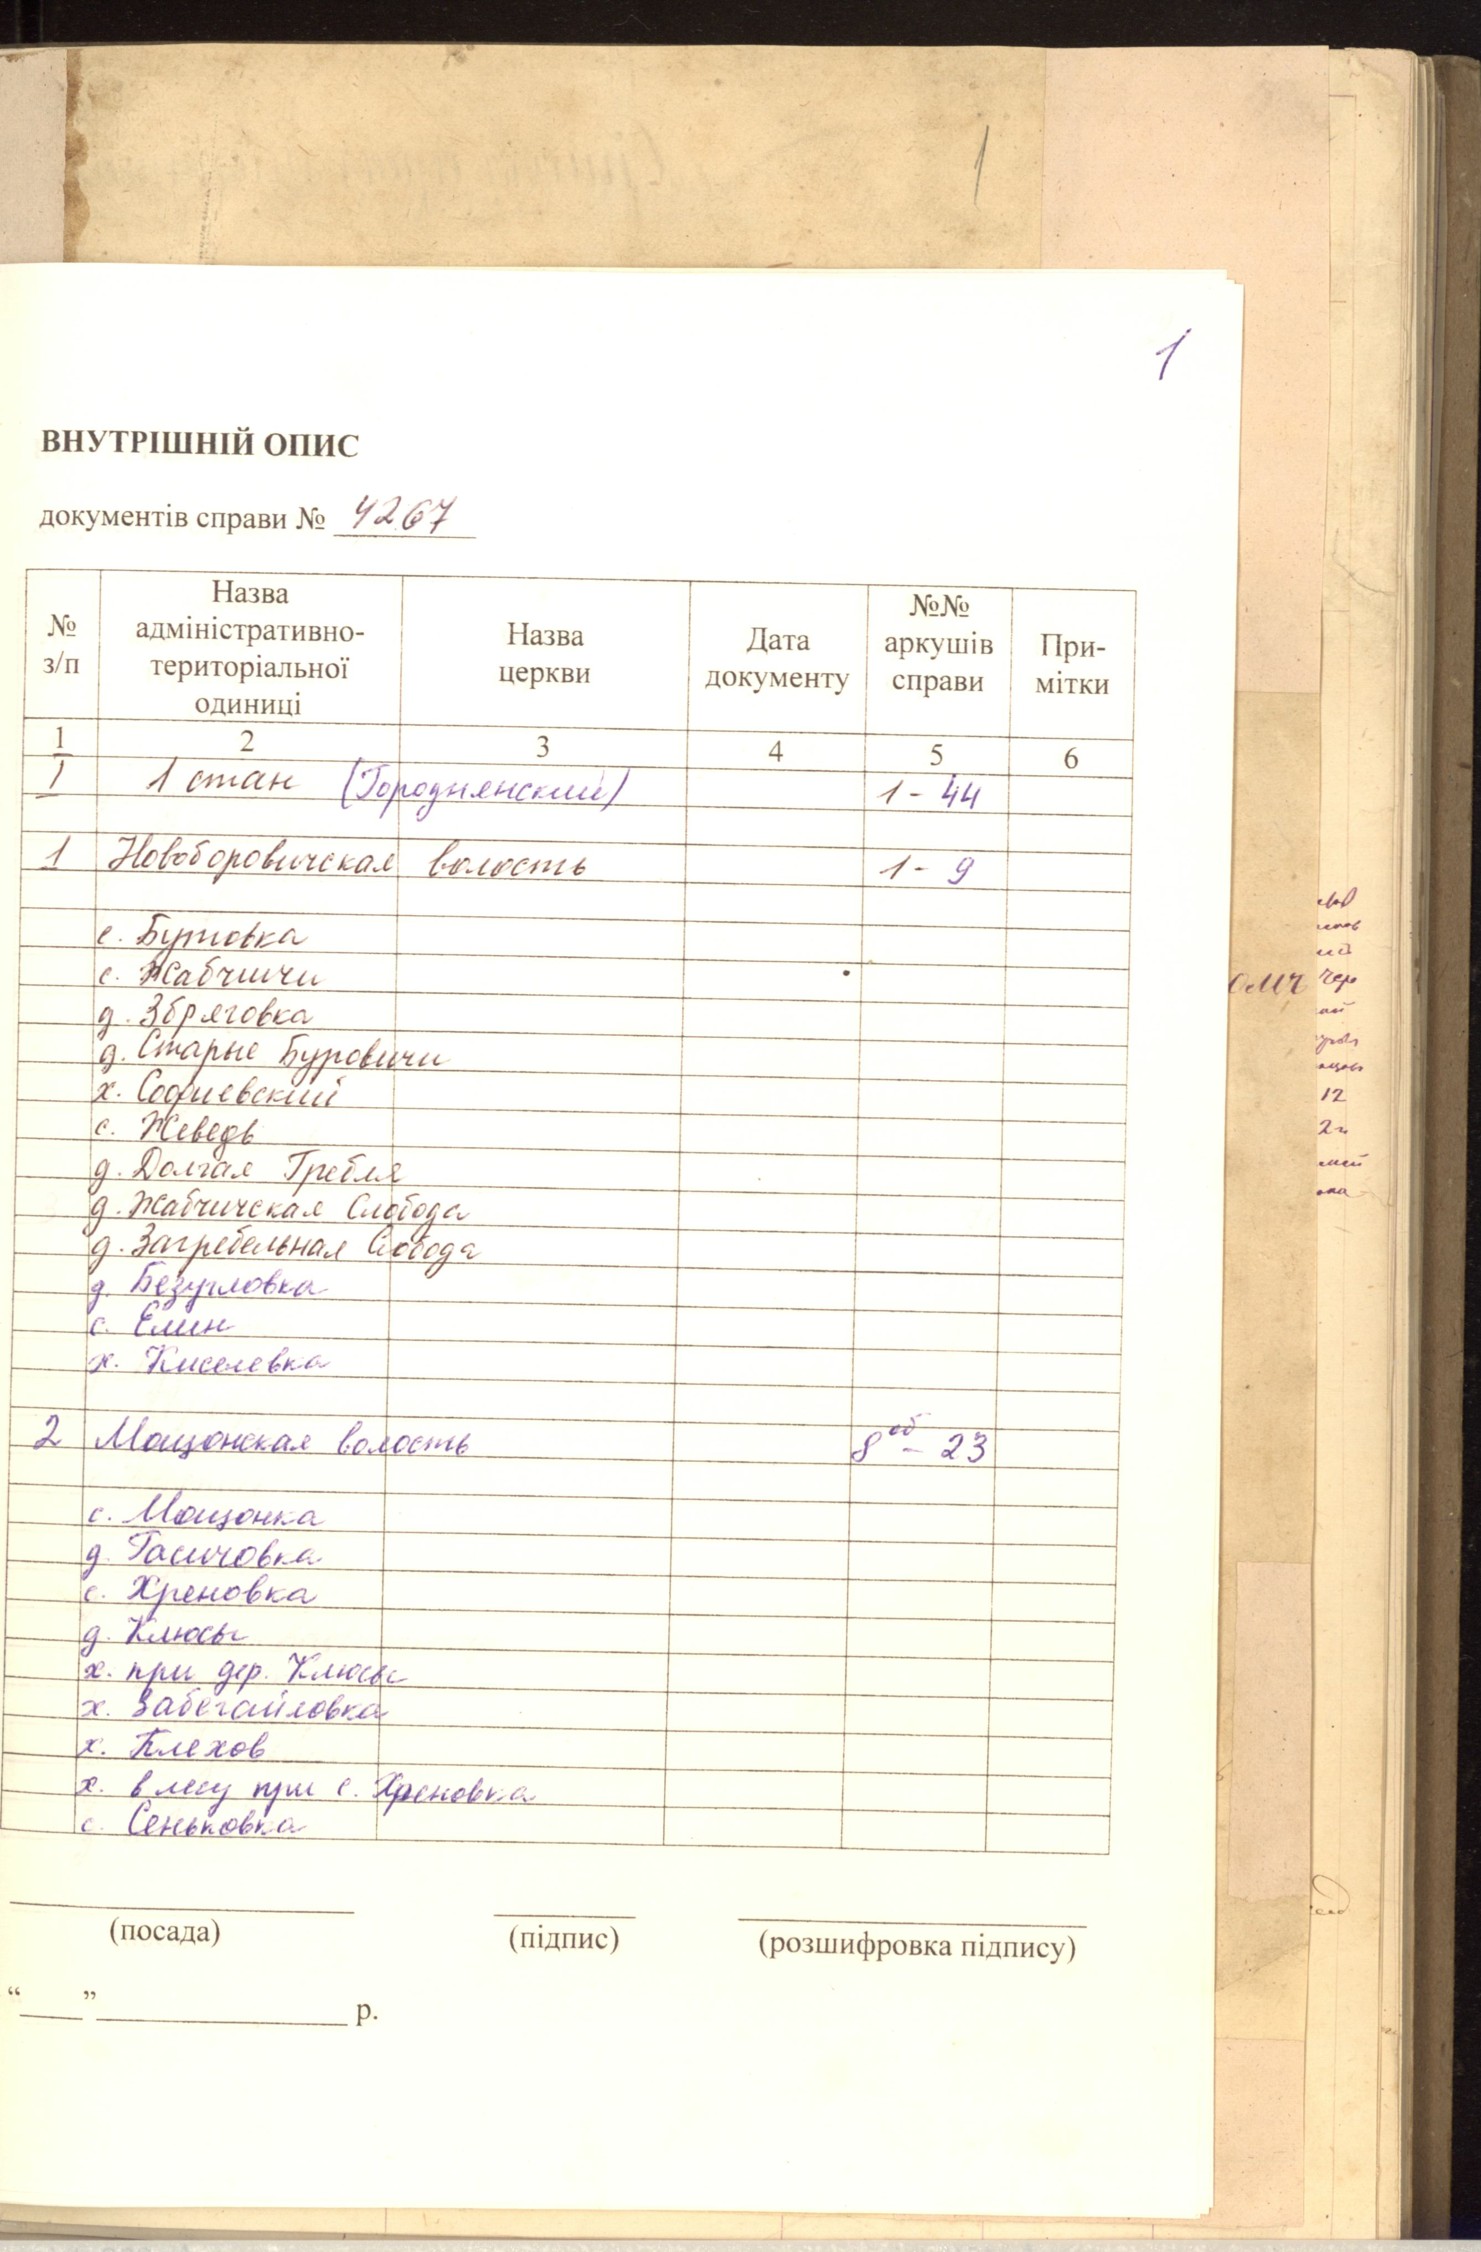 1
1
ВНУТРІШНІЙ ОПИС
документів справи № 4267
№ з/п
Назва адміністративно-територіальної одиниці
Назва церкви
Дата документу
№№ аркушів справи
При-мітки
1 2 3 4 5 6
I 1 стан (Городнянский) 1 - 44
1 Новоборовичская волость 1 - 9
с. Бутовка
с. Жабчичи
д. Збряговка
д. Старые Буровичи
х. Софиевский
с. Жеведь
д. Долгая Гребля
д. Жабчичская Слобода
д. Загребельная Слобода
д. Безугловка
с. Елин
х. Киселевка
2 Мощонская волость 8об - 23
с. Мощонка
д. Гасичовка
с. Хреновка
д. Клюсы
х. при дер. Клюсы
х. Забегайловка
х. Плехов
х. в лесу при с. Хреновка
с. Сеньковка
(посада) (підпис) (розшифровка підпису)
“___”______________ р.
12